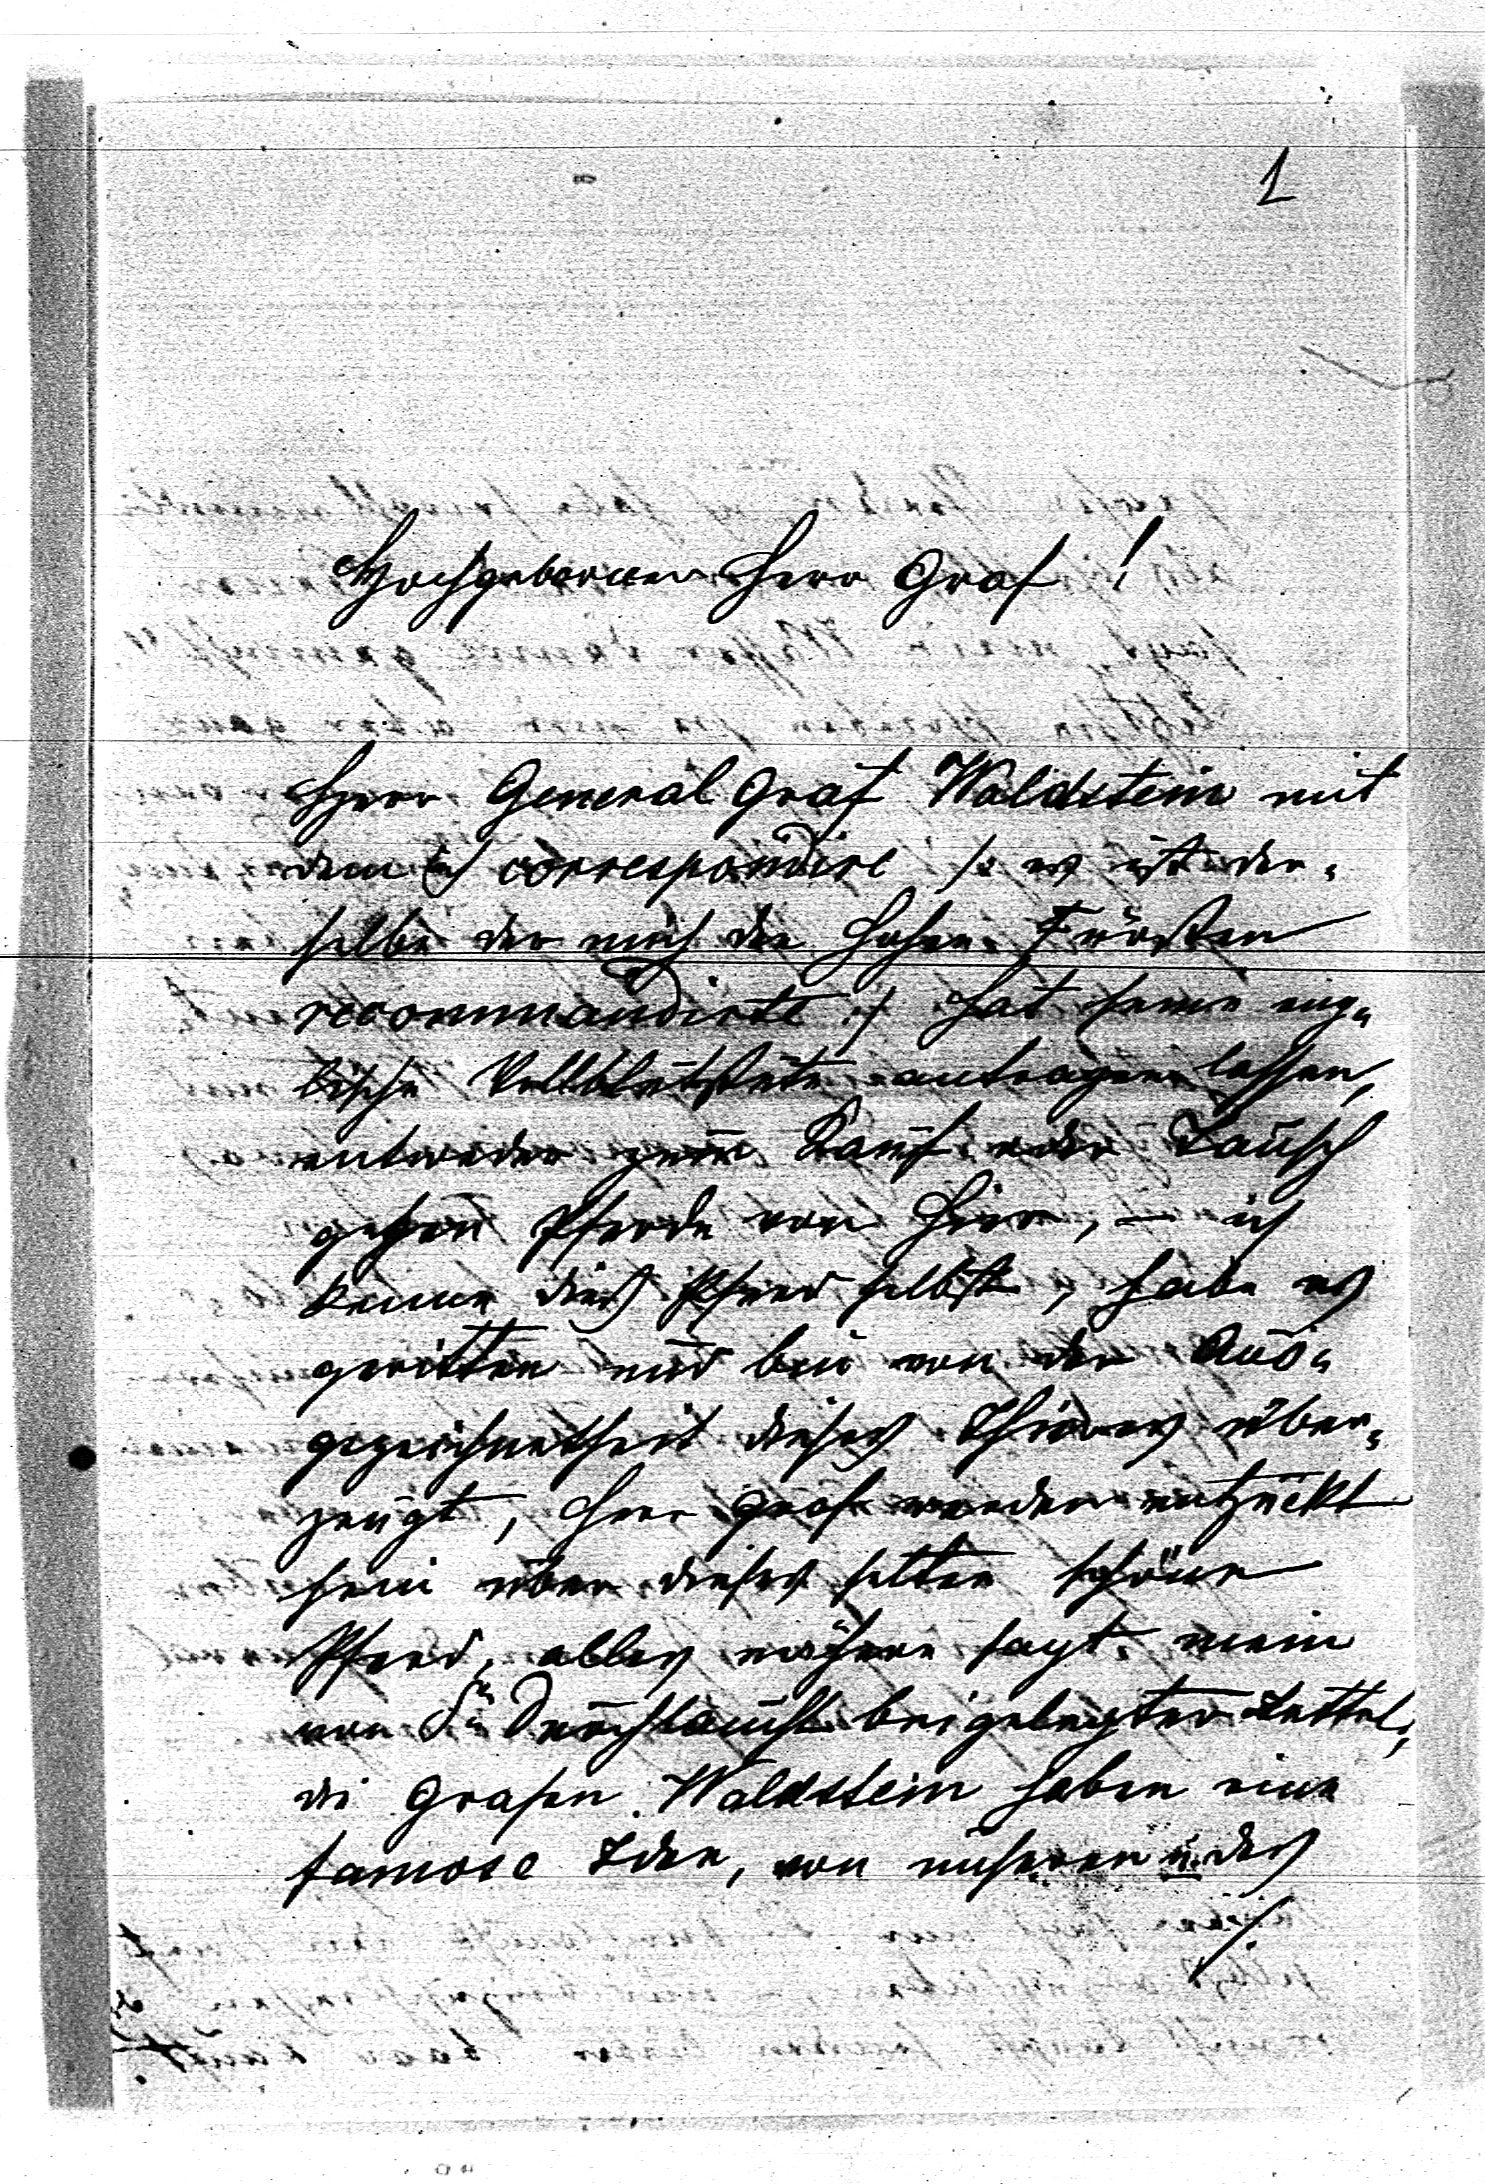 1
Hochgeborner Herr Graf!
Herr General Graf Waldstein mit
dem ich correspondire /: es ist der-
selbe der mich den hohen Fürsten
recommandirte :/ hat seine eng-
lische Vollblutstute antragen lassen,
entweder zum Kauf oder Tausch
gegen Pferde von hier, – ich
kenne dieß Pferd selbst, habe es
geritten und bin von der Aus-
gezeichnetheit dieses Thieres über-
zeugt, Herr Graf werden entzückt
sein über dieses selten schöne
Pferd, alles nähere sagt mein
von Sr Durchlaucht beigelegter Zettel,
die Grafen Waldstein haben eine
famose Idee, von unseren u. des
./.